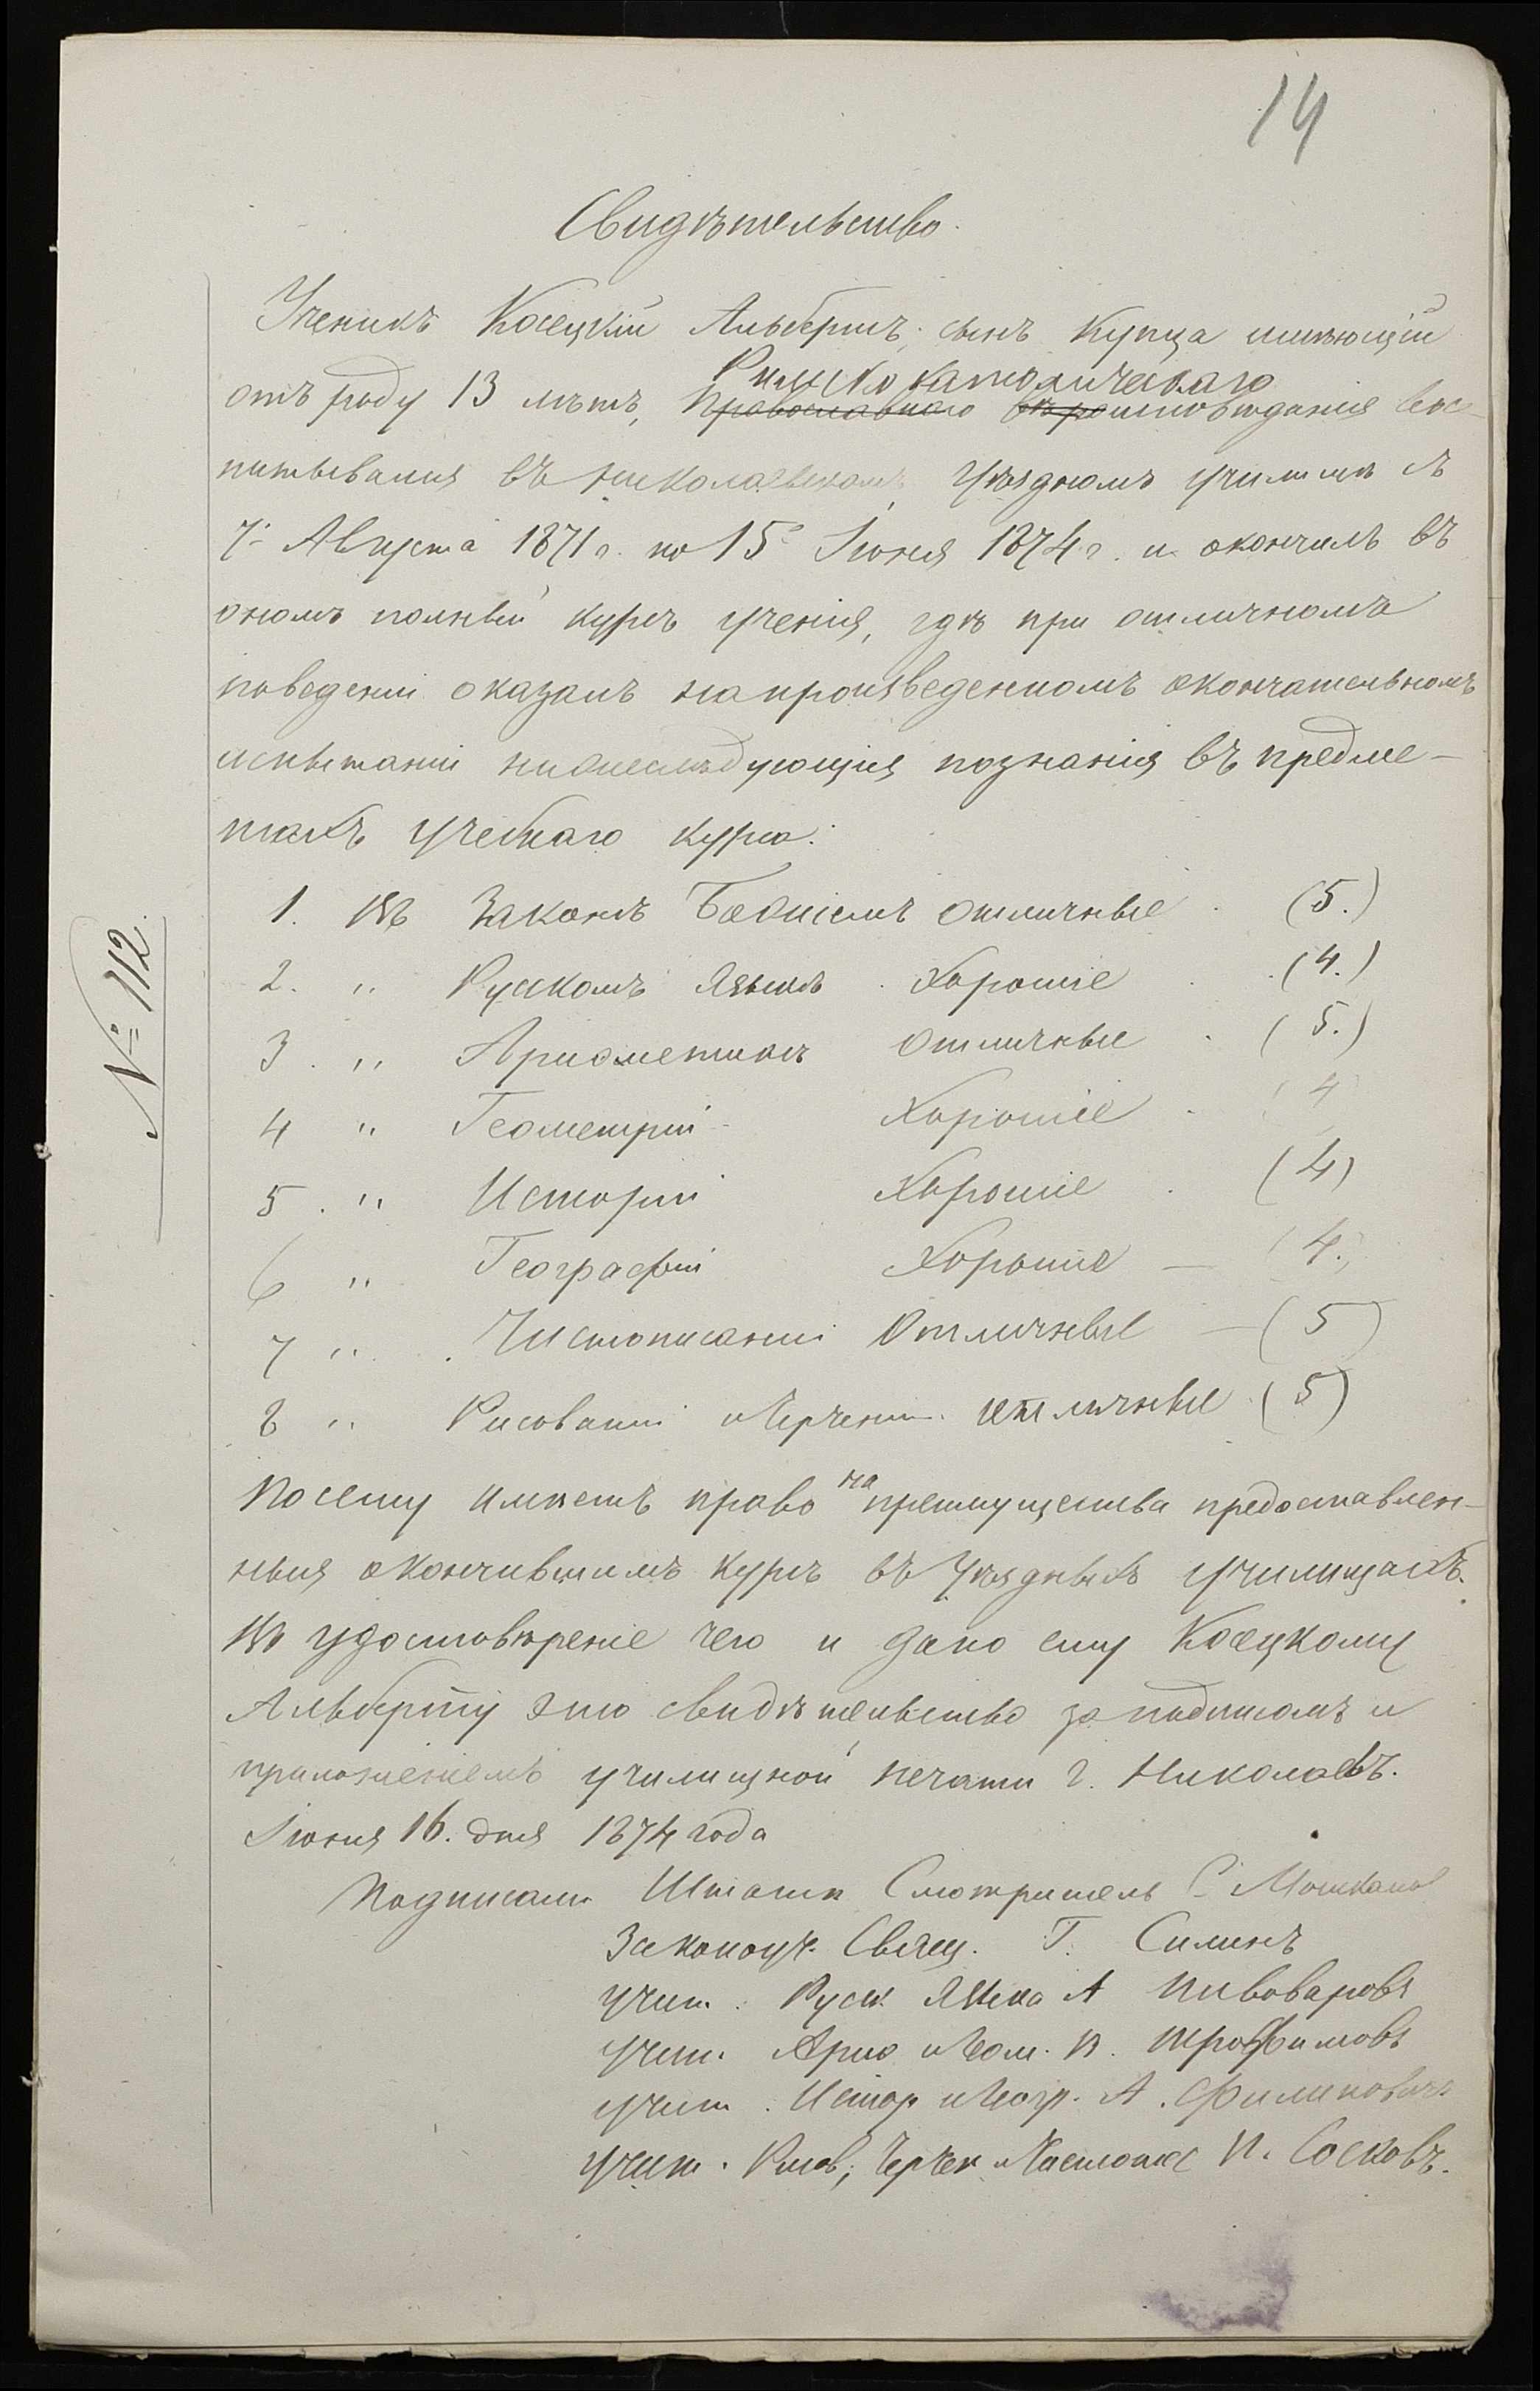 14
Свидѣтельство.
Ученикъ Косецкій Альбертъ, сынъ Купца имѣющій
Римско католическаго
отъ роду 13 лѣтъ, Православнаго вѣроисповѣданія вос-
питывался въ Николаевскомъ Уѣздномъ училищѣ съ
7го Августа 1871 г. по 15е Іюня 1874 г. и окончилъ въ
ономъ полный курсъ ученія, гдѣ при отличномъ
поведеніи оказалъ на произведенномъ окончательномъ
испытаніи нижеслѣдующія познанія въ предме-
тахъ учебнаго курса:
№ 112.
1. Въ Законѣ Божіемъ отличные (5.)
2. " Русскомъ языкѣ . Хорошіе . (4.)
3. " Ариѳметикѣ отличные . (5.)
4 " Геометріи - Хорошіе . (4
5. " Исторіи Хорошіе . (4)
6 " Географіи Хорошіе — (4.)
7 " . Чистописаніи Отличные — (5)
8 " Рисованіи и Черченіи. отличные (5)
Посему имѣетъ право на преимущества предоставлен-
ныя окончившимъ курсъ въ Уѣздныхъ училищахъ.
Въ удостовѣреніе чего и дано ему Косецкому
Альберту это свидѣтельство за подписомъ и
приложеніемъ училищной печати г. Николаевъ.
Іюня 16. дня 1874 года
Подписали Штатн Смотритель С. Мошканов
Законоуч. Свящ. Г. Силинъ
учит. Руск. Языка А Пивоваровъ
учит. Ариѳ и Геом. П. Трофимовъ
учит. Истор и Геогр. А. Филиповичъ
учит. Рисов, Черчен и Чистопис П. Сосковъ.